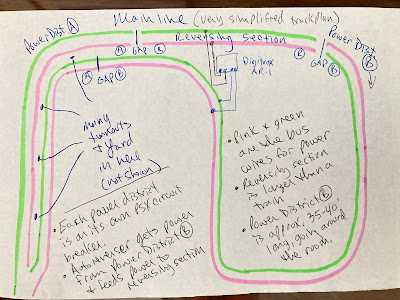 Main line (very simplified trackplan)
Power Dist Ⓐ
Ⓐ GAP Ⓡ
Reversing section
Ⓡ GAP Ⓑ
Power Dist
Ⓑ
Ⓐ GAP Ⓑ
Digitrax
AR-1
many
turnouts
+ yard
in here
(not shown)
• Each power district
is on its own PSX circuit
breaker.
• Autoreverser gets power
from Power District Ⓑ
+ feeds power to
reversing section
• Pink + green
are the bus
wires for power
• Reversing section
is larger than a
train
• Power District Ⓑ
is approx. 35-40'
long, going around
the room.